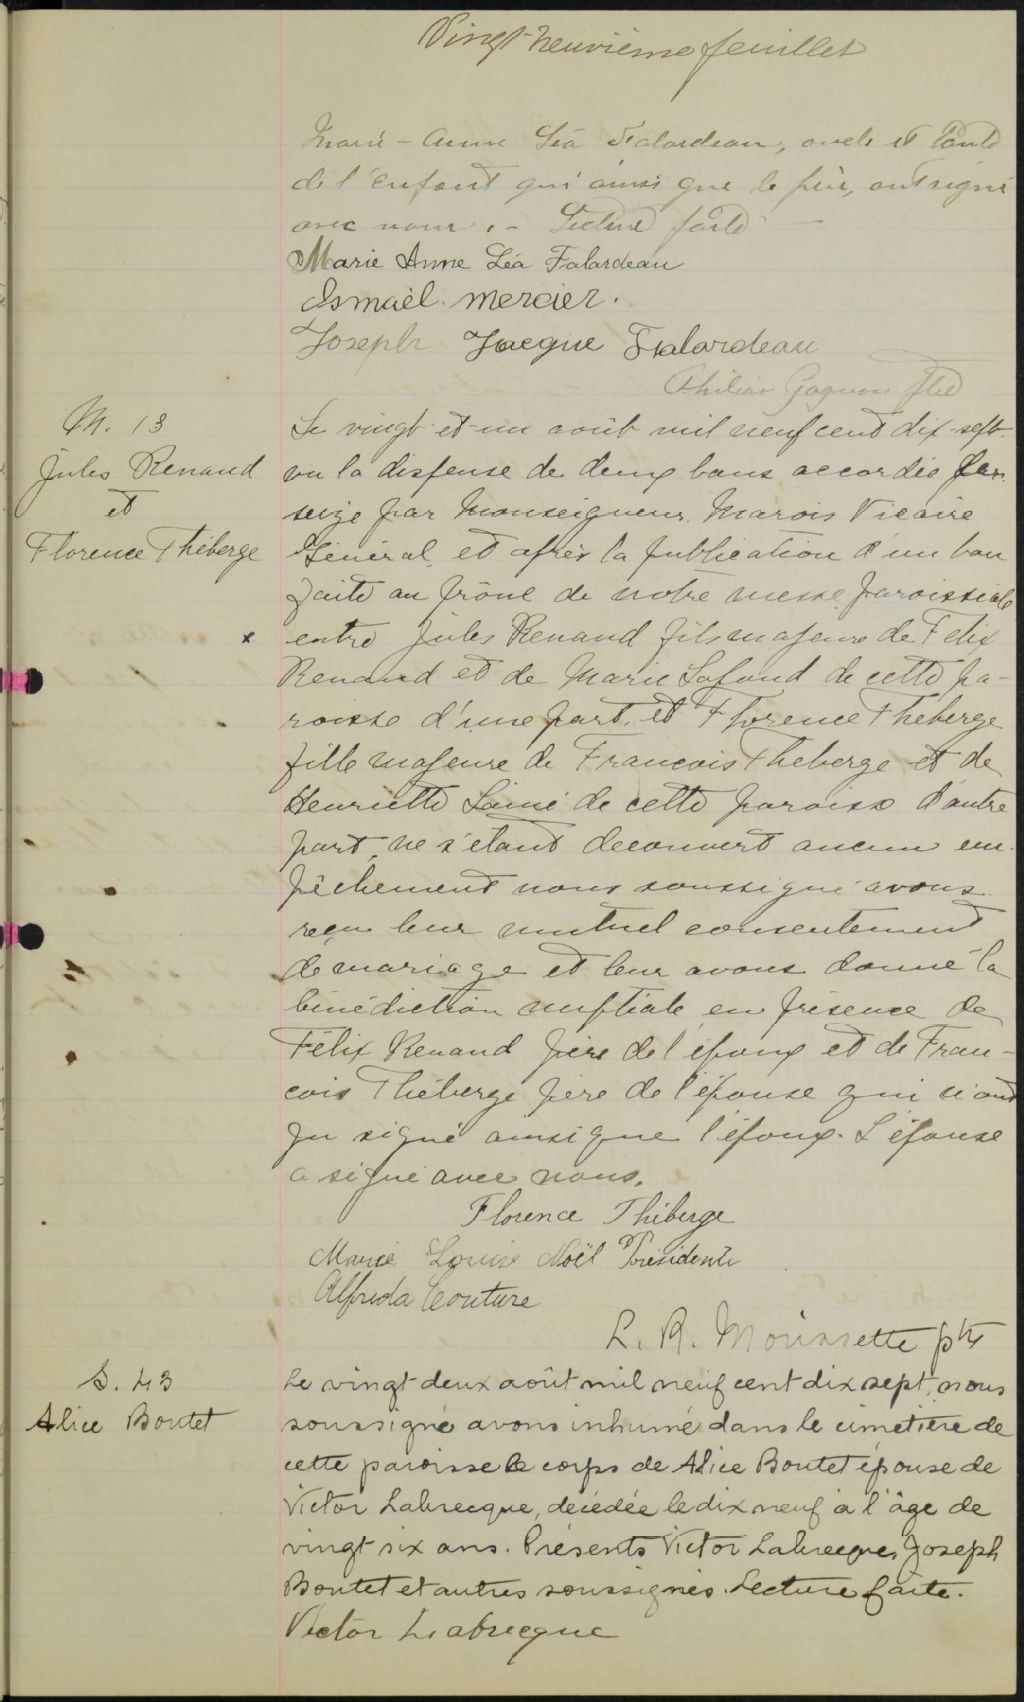 Vingt-neuvième feuillet
Marie-Anne Léa Falardeau, oncle et tante
de l'enfant qui ainsi que le père, ont signé
avec nous.- Lecture faite
Marie Anne Léa Falardeau
Ismaël. mercier.
Joseph Jacque Falardeau
Philias Gagnon ptre
M. 13
Jules Renaud
et
Florence Théberge
Le vingt-et-un août mil neuf cent dix-sept
vu la dispense de deux bans accordée
par Monseigneur Marois Vicaire
Général, et après la publication d'un ban
faite au prône de notre messe paroissiale
x entre Jules Renaud fils majeur de Felix
Renaud et de Marie Lafond de cette pa-
roisse d'une part, et Florence Théberge
fille majeure de Francois Theberge et de
Henriette Lainé de cette paroisse d'autre
part, ne s'étant decouvert aucun em-
pêchement nous soussigné avons
reçu leur mutuel consentement
de mariage et leur avons donné la
bénédiction nuptiale en présence de
Félix Renaud père de l'époux et de Fran-
cois Théberge père de l'épouse qui n'ont
pu signé ainsi que l'époux. L'épouse
a signé avec nous.
Florence Théberge
Marie Louise Noël Présidente
Alfreda Couture
L. R. Moissette ptre
S. 43
Alice Boutet
Le vingt deux août mil neuf cent dix sept, nous
soussigné avons inhumé dans le cimetière de
cette paroisse le corps de Alice Boutet épouse de
Victor Labrecque, décédée le dix neuf à l'âge de
vingt six ans. Présents Victor Labrecque, Joseph
Boutet et autres soussignés. Lecture faite.
Victor Labrecque